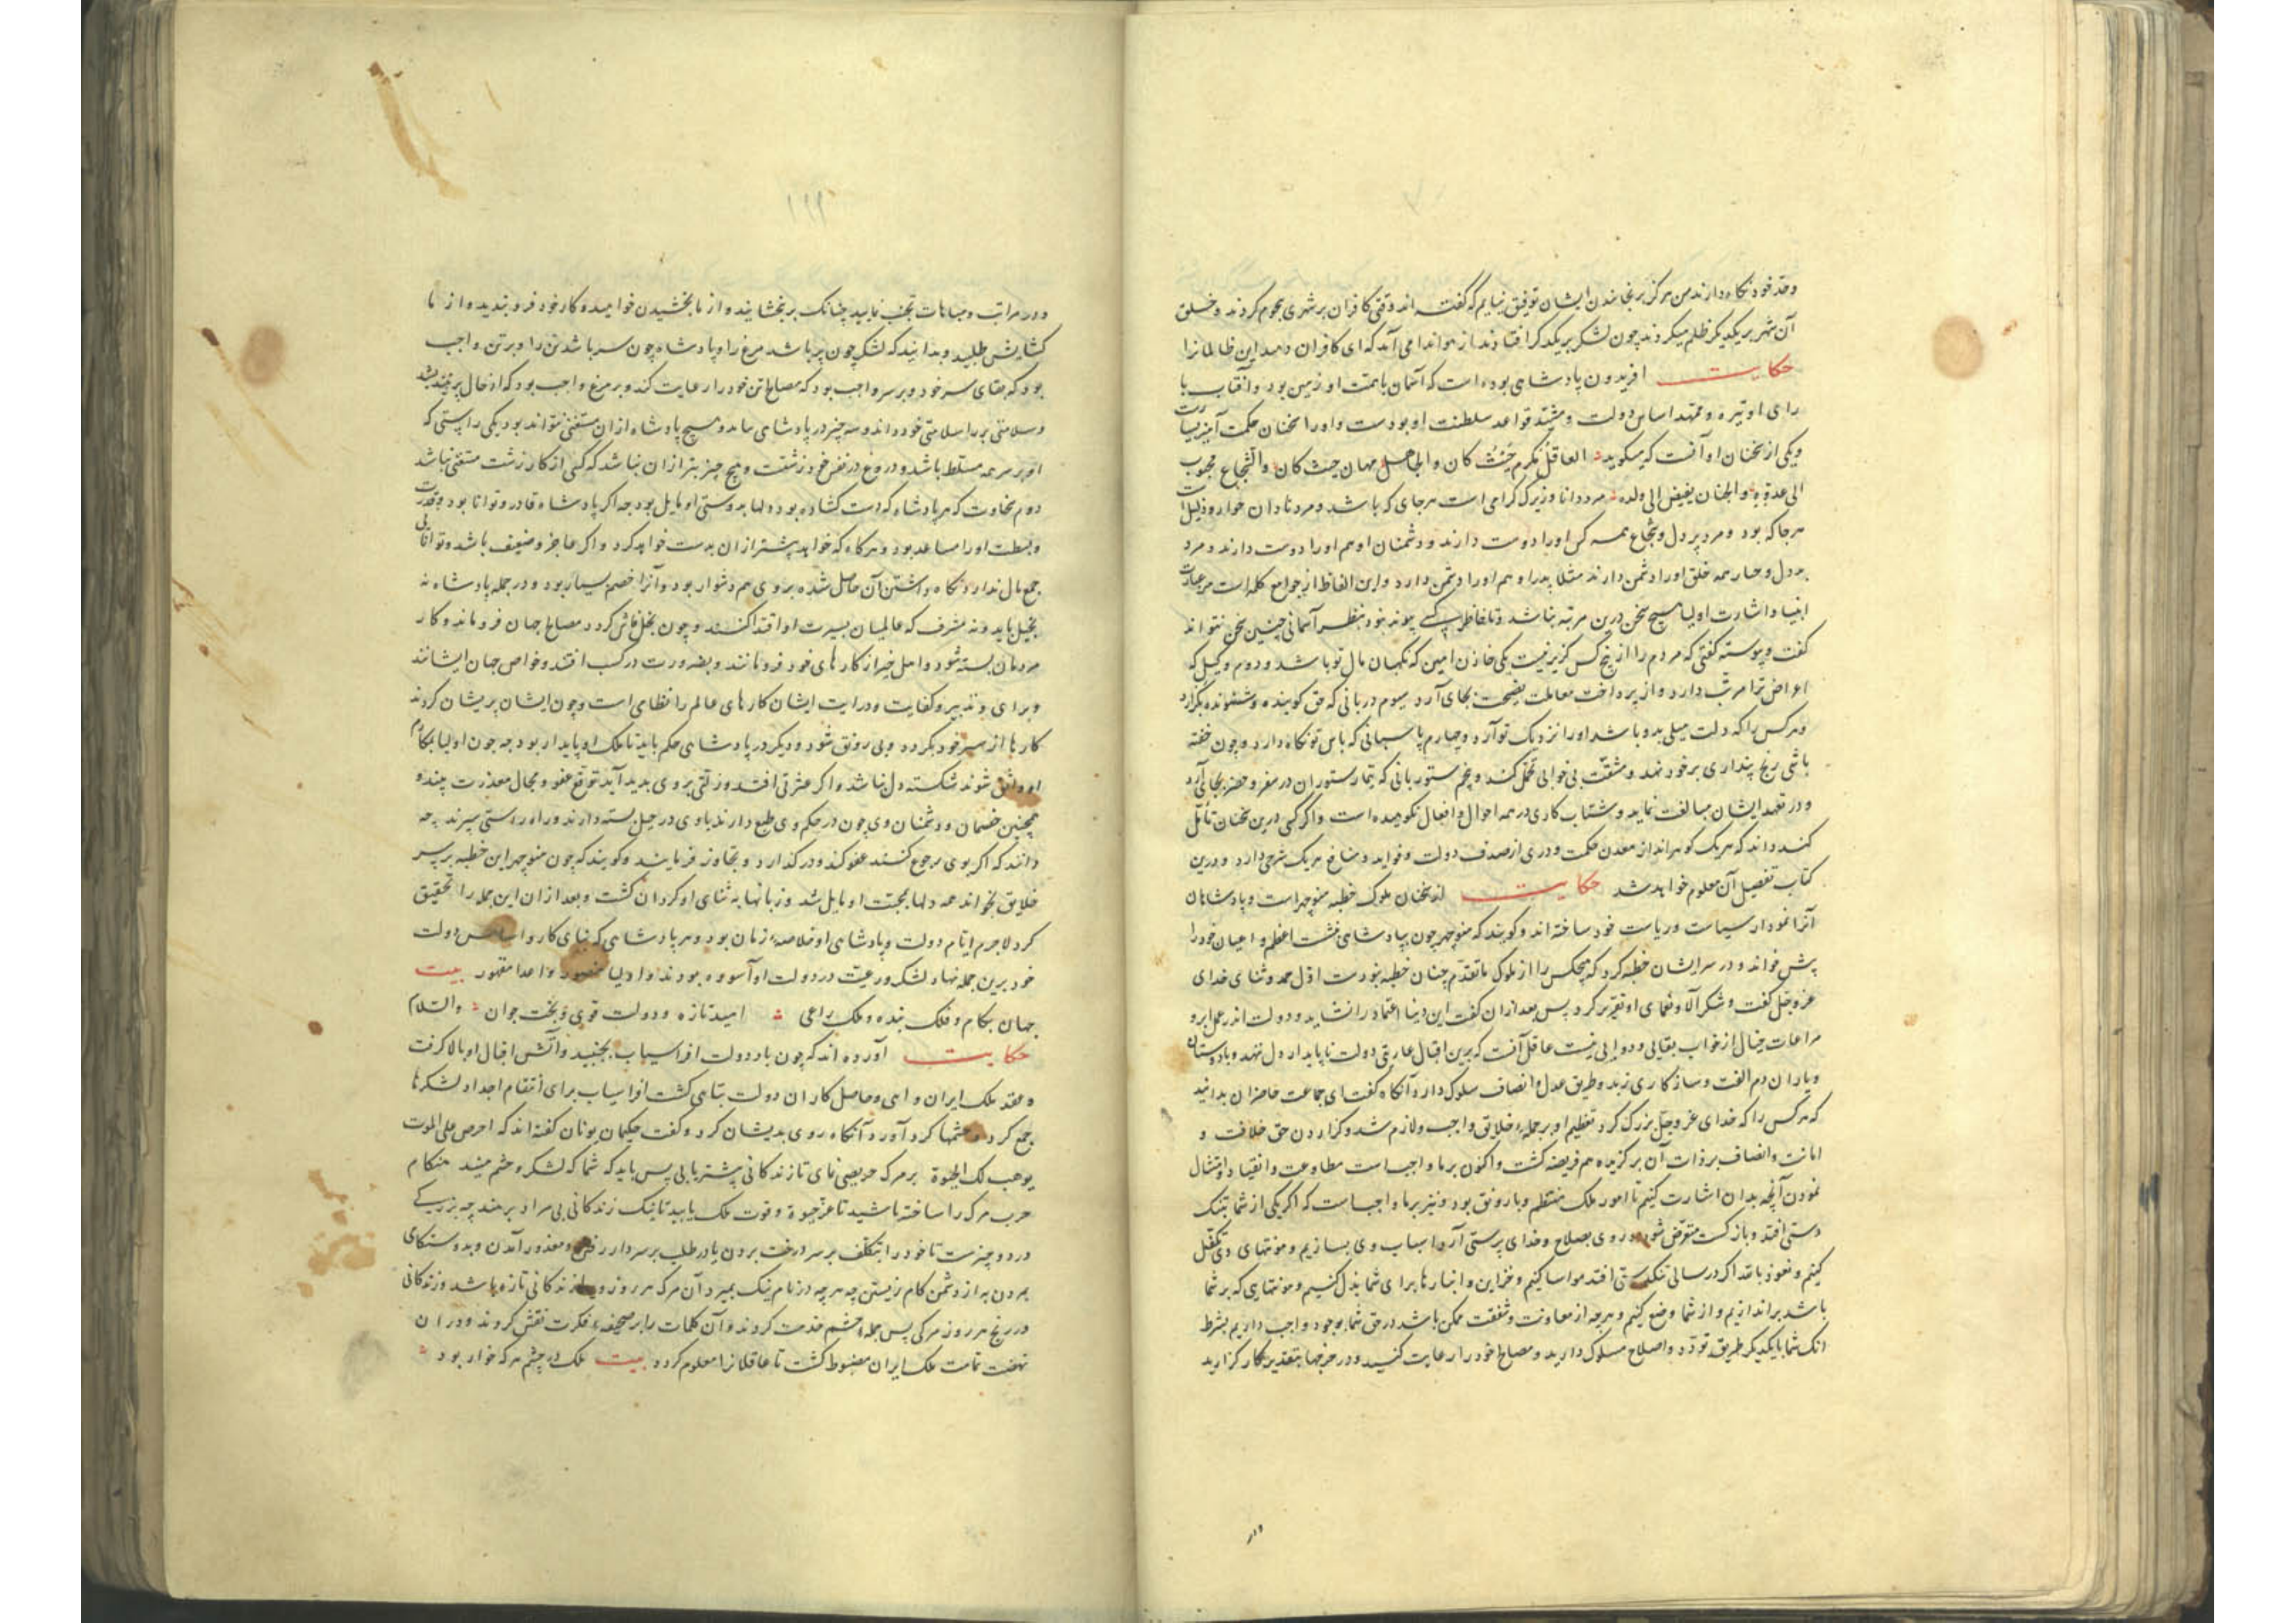 وقد خود نگاه دارند من هرگز برنجانیدن ایشان توفیق نیابم که گفته اند وقتی کافران بر شهری هجوم کردند و خلق
آن شهر بر یکدیگر ظلم میکردند چون لشکر بر یکدیگر افتادند از هوا ندا می آمد که ای کافران دهید این ظالمانرا
حکایت افریدون پادشاهی بوده است که آسمان با همت او زمین بود و آفتاب با
رای او تیره و ممهد اساس دولت و مشید قواعد سلطنت او بودست و او را سخنان حکمت آمیز بسیارست
و یکی از سخنان او آنست که میگوید العاقل مکرم حیث کان والجاهل مهان حیث کان والشجاع محبوب
الی عدوه والجبان یبغض الی ولده مرد دانا و زیرک گرامی است هر جای که باشد و مرد نادان خوار و ذلیل است
هر جا که بود و مرد پر دل و شجاع همه کس او را دوست دارند و دشمنان او هم او را دوست دارند و مرد
بددل و جبار همه خلق او را دشمن دارند مثلا پدر او هم او را دشمن دارد و این الفاظ از جوامع کلم است مر عبارت
انبیا و اشارت اولیا هیچ سخن درین مرتبه نباشد و تا خاطر کسی پیوند نبود بنظر آسمانی چنین سخن نتواند
گفت و پیوسته گفتی که مردم را از پنج کس گزیر نیست یکی خازن امین که نگهبان مال تو باشد و دوم وکیل که
اعراض ترا مرتب دارد و از پرداخت معاملت نصیحت بجای آرد سیوم دربانی که حق گوینده و شنونده بگزارد
و هر کس را که دلت میلی بدو باشد او را نزدیک تو آرد و چهارم پاسبانی که پاس تو نگاه دارد و چون خفته
باشی رنج پنداری بر خود نهد و مشقت بی خوابی تحمل کند و پنجم ستوربانی که تیمار ستوران در سفر و حضر بجای آرد
و در تعهد ایشان مبالغت نماید و شتاب کاری در همه احوال و افعال نکوهیده است و اگر کسی درین سخنان تأمل
کند داند که هر یک گوهر اند از معدن حکمت و دری از صدف دولت و فواید و منافع هر یک شرحی دارد و درین
کتاب تفصیل آن معلوم خواهد شد حکایت از سخنان ملوک خطبه منوچهر است و پادشاهان
آنرا نمودار سیاست و ریاست خود ساخته اند و گویند که منوچهر چون بپادشاهی نشست اعظم و اعیان خود را
پیش خواند و در سر ایشان خطبه کرد که هیچکس را از ملوک ما تقدم چنان خطبه نبودست اول حمد و ثنای خدای
عز و جل گفت و شکر آلا و نعمای او تقریر کرد پس بعد ازان گفت این دنیا اعتماد را نشاید و دولت اندر عمل ابر و
مراعات خیال از خواب بقایی و دوایی نیست عاقل آنست که برین اقبال عاریتی دولت ناپایدار دل ننهد و با دوستان
و یاران دم الفت و سازگاری زند و طریق عدل و انصاف سلوک دارد آنگاه گفت ای جماعت حاضران بدانید
که هر کس را که خدای عز و جل بزرگ کرد تعظیم او بر جمله خلایق واجب و لازم شد و گزاردن حق خلافت و
امانت و انصاف بر ذات آن برگزیده هم فریضه گشت و اکنون بر ما واجب است مطاوعت و انقیاد و امتثال
نمودن آنچه بدان اشارت کنیم تا امور ملک منتظم و با رونق بود و نیز بر ما واجب است که اگر یکی از شما بتنک
دستی افتد و باز گشت مقوض شود و روی بصلاح و خدای پرستی آرد اسباب وی بسازیم و مونتهای وی تکفل
کنیم و نعوذ بالله اگر در سالی تنگدستی افتد مواسا کنیم و خزاین و انبارها برای شما بذل کنیم و مونتهایی که بر شما
باشد براندازیم و از شما وضع کنیم و هر چه از معاونت و شفقت ممکن باشد در حق شما بوجود واجب داریم بشرط
انک شما با یکدیگر طریق تودد و اصلاح مسلوک دارید و مصالح خود را رعایت کنید و در خرجها بتقدیر کار گزارید
و در
۱۹۹
و در مراتب و مباهات تجنب نمایید چنانک بر بخشایند و از نابخشیدن خوامید و کار خود فرو بندید و از نا
گشایش طلبید و بدانید که لشکر چون پر باشد مرغ را و پادشاه چون سر باشد تن را و بر تن واجب
بود که بقای سر خود و بر سر واجب بود که مصالح تن خود را رعایت کند و بر مرغ واجب بود که از حال پر بیندیشد
و سلامتی پر را سلامتی خود داند و سه چیز در پادشاهی باید و هیچ پادشاه ازان مستغنی نتواند بود یکی راستی که
او بر سر همه مسلط باشد و دروغ در نفس خود زشتست و هیچ چیز بتر ازان نباشد که کسی از کار زشت مستغنی باشد
دوم سخاوت که هر پادشاه که دست گشاده بود دلها بدوستی او مایل بود چه اگر پادشاه قادر و توانا بود و قدرت
و بسطت او را مساعد بود و هر گاه که خواهد بیشتر ازان بدست خواهد کرد و اگر عاجز و ضعیف باشد و توانائی
جمع مال ندارد نگاه داشتن آن حاصل شده بروی هم دشوار بود و آنرا خصم بسیار بود و در جمله پادشاه نه
بخیل باید و نه مسرف که عالمیان بسیرت او اقتدا کنند و چون بخل فاش گردد مصالح جهان فرو ماند و کار
مردمان بسته شود و اهل خیر از کارهای خود فرو مانند و بضرورت در کسب افتند و خواص جهان ایشانند
و برای و تدبیر و کفایت و درایت ایشان کارهای عالم را نظامی است و چون ایشان پریشان گردند
کارها از سیر خود بگردد و بی رونق شود و دیگر در پادشاهی حکم باید تا ملک او پایدار بود چه چون اولیا بمکارم
او واثق شوند شکسته دل نباشد و اگر عثرتی افتد و زلتی بروی بدید آید توقع عفو و مجال معذرت بیند و
همچنین خصمان و دشمنان وی چون در حکم وی طمع دارند با وی در حیل بسته دارند و راه راستی سپرند چه
دانند که اگر بوی رجوع کنند عفو کند و درگذارد و تجاوز فرمایند و گویند که چون منوچهر این خطبه بر سر
خلایق بخواند همه دلها بمحبت او مایل شد و زبانها به ثنای او گردان گشت و بعد ازان این جمله را تحقیق
کرد لاجرم ایام دولت و پادشاهی او خلاصه زمان بود و هر پادشاهی که بنای کار و اساس دولت
خود برین جمله نهاد لشکر و رعیت در دولت او آسوده بودند و اولیا منصور و اعدا مقهور بیت
جهان بکام و فلک بنده و ملک راعی امید تازه و دولت قوی و بخت جوان والسلام
حکایت آورده اند که چون باد دولت افراسیاب بجنبید و آتش اقبال او بالا گرفت
و عقد ملک ایران واهی و حاصل کار ان دولت بتاهی گشت افراسیاب برای انتقام اجداد لشکرها
جمع کرد و حشمها گرد آورد و آنگاه روی بدیشان کرد و گفت حکیمان یونان گفته اند که احرص علی الموت
یوهب لک الحیوة بر مرگ حریصی نمای تا زندگانی بیشتر یابی پس باید که شما که لشکر و حشم منید هنگام
حرب مرگ را ساخته باشید تا عز حیوة و قوت ملک یابید تا نیک زندگانی بی مراد بر منند چه بزرگی
در دو چیزست تا خود را بتکلف بر سر درخت بردن یا در طلب بر سر دار رفتن و معذور آمدن و بدوستکامی
مردن به از دشمن کام زیستن چه هر چه در نام نیک بمیرد آن مرگ هر روز و را زندگانی تازه باشد و زندگانی
در رنج هر روز مرگی پس جمله حشم خدمت کردند و آن کلمات را بر صحیفه فکرت نقش کردند و در ان
نهضت تمامت ملک ایران مضبوط گشت تا عاقلانرا معلوم گردد بیت ملک در چشم هر که خوار بود